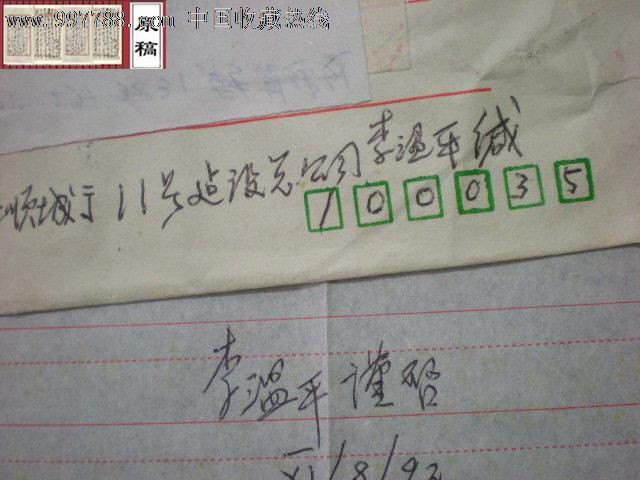 www.997788.com 中国收藏热线
原稿
顺城街11号建设总公司李温平缄
100035
李温平 谨启
/8/92